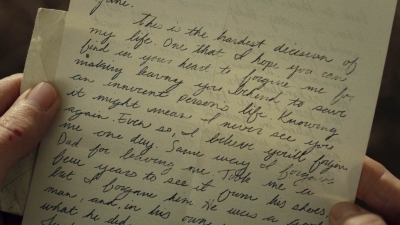 Jane.
This is the hardest decision of
my life. One that I hope you can
find in your heart to forgive me for
making leaving you behind to save
an innocent persons life. Knowing
it might mean I never see you
again. Even so, I believe you'll forgive
me one day. Same way I forgave
Dad for leaving me. Took me a
few years to see it from his shoes,
but I forgave him. He was a good
man, and in his own
what he did